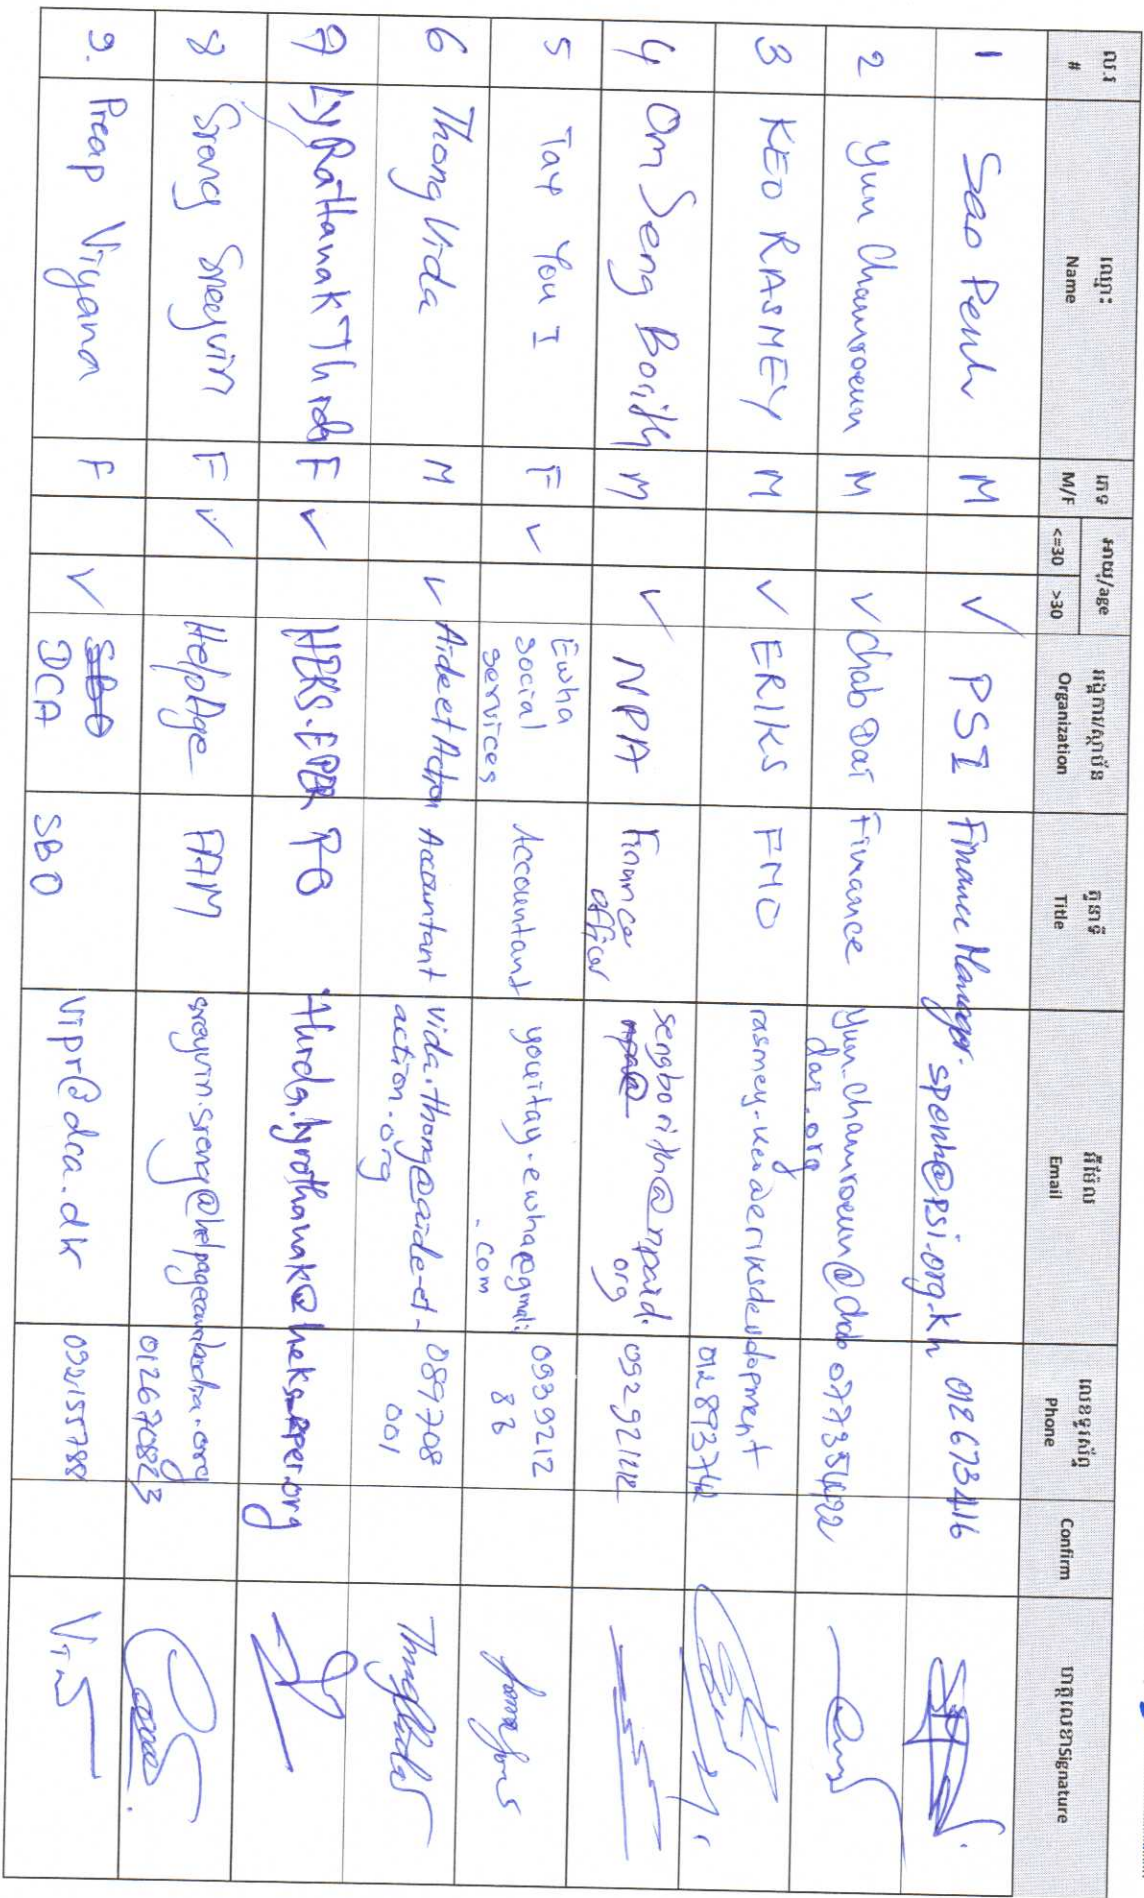 ល.រ
#
ឈ្មោះ
Name
ភេទ
M/F
អាយុ/age
<=30
>30
អង្គការ/ស្ថាប័ន
Organization
តួនាទី
Title
អ៊ីម៉ែល
Email
លេខទូរស័ព្ទ
Phone
Confirm
ហត្ថលេខា/Signature
1 Sao Penh M ✓ PSI Finance Manager. spenh@psi.org.kh 012673416
2 Yun Chamroeun M ✓ Chab Dai Finance yun.chamroeun@chab
dai.org
077354422
3 KEO RASMEY M ✓ ERIKS FMO
012893742
4 Om Seng Borith M ✓ NPA Finance
officer
sengborith@npaid.
org
5 Tay You I F ✓ Ewha
social
services
Accountant youitay.ewha@gmail
.com
09399212
6 Thong Vida M ✓ Aide et Action Accountant vida.thong@aide-et-
action.org
089708
001
7 Ly Rattanak Thida F ✓ HEKS.EPER PO
8 Sreng Sreyvin F ✓ HelpAge FAM sreyvin.sreng@helpagecambodia.org
9. Preap Viyana F ✓ SBO
DCA
SBO vipr@dca.dk 092155788